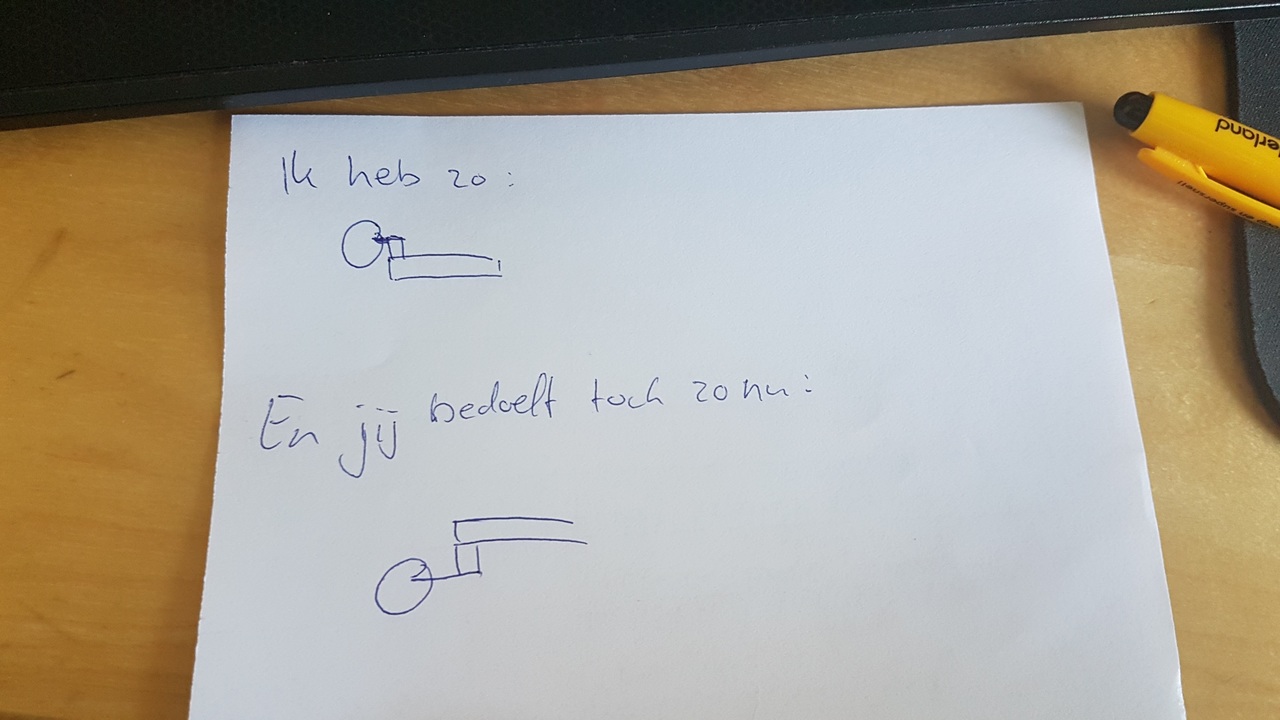 Ik heb zo:
En jij bedoelt toch zo nu:
erland
en supersnel